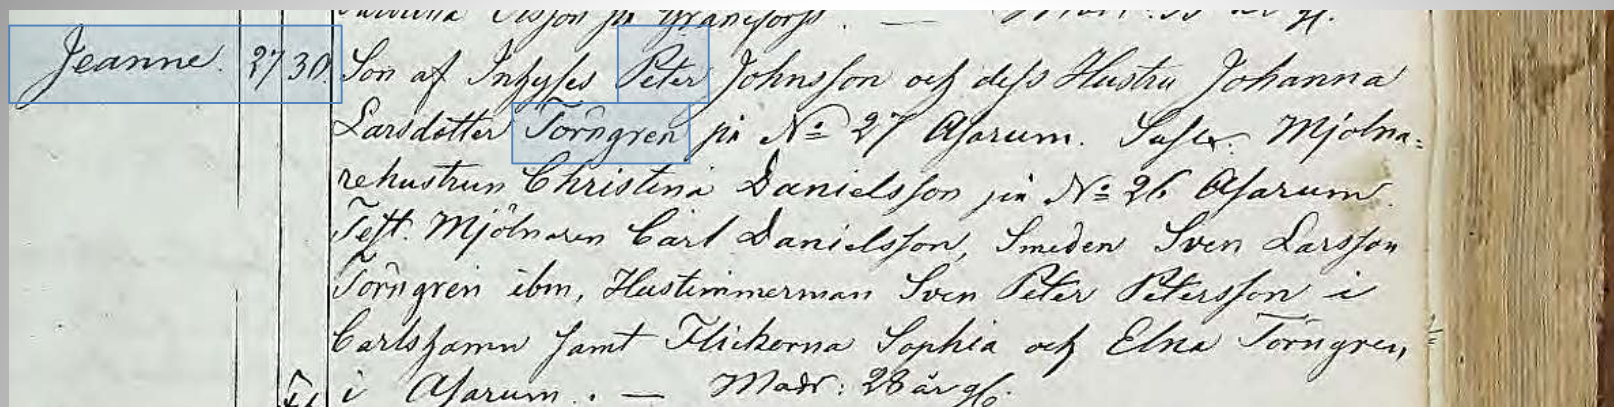 Olsson på Granefors. — Modr: 33 år gl.
Jeanne. 27 30. Son af Inhyses Peter Johnsson och dess Hustru Johanna
Larsdotter Törngren på No 27 Asarum. Susc. Mjölna=
rehustrun Christina Danielsson på No 26 Asarum.
Test. Mjölnaren Carl Danielsson, Smeden Sven Larsson
Törngren ibm, Hustimmerman Sven Peter Petersson i
Carlshamn samt Flickorna Sophia och Elna Törngren,
i Asarum. — Modr: 28 år gl.